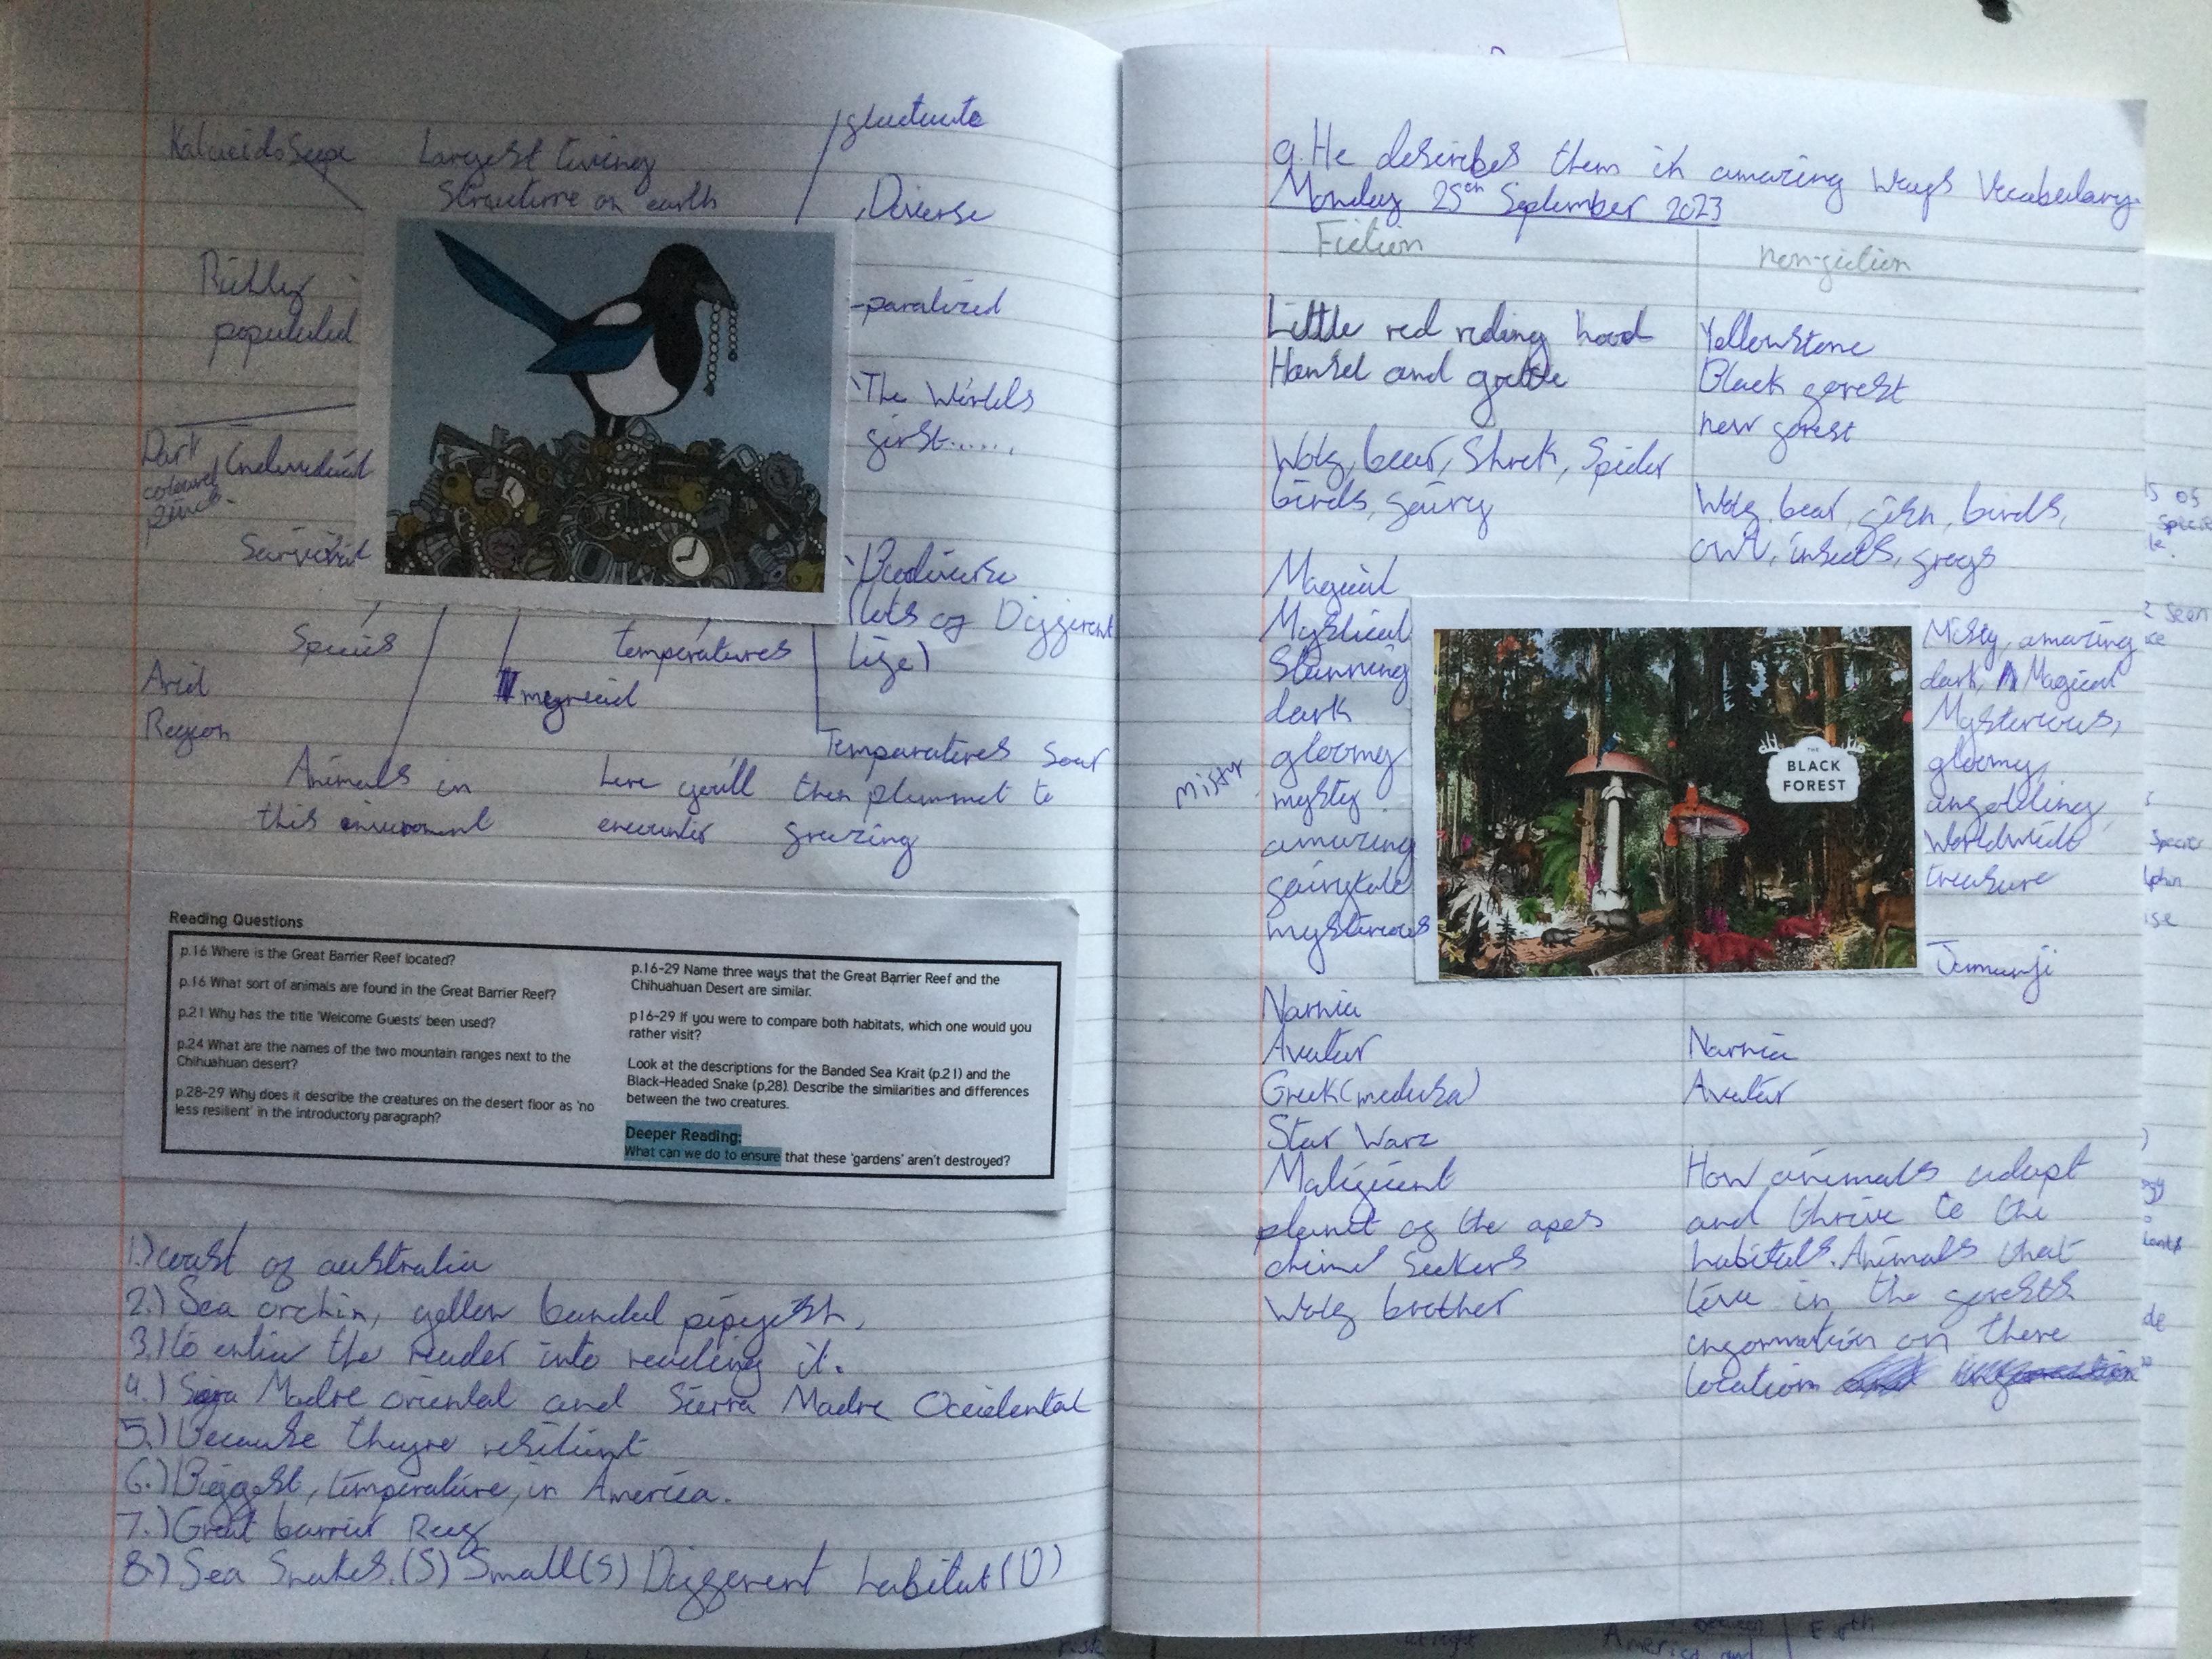 Largest living
structure on earth
Diverse
Richly
populated
The Worlds
first......
Dark
coloured
Survival
(lots of Different
life)
Species
temperatures
Arid
Region
Animals in
this
here you'll
encounter
Temparatures Soar
then plummet to
Reading Questions
p.16 Where is the Great Barrier Reef located?
p.16 What sort of animals are found in the Great Barrier Reef?
p.21 Why has the title 'Welcome Guests' been used?
p.24 What are the names of the two mountain ranges next to the
Chihuahuan desert?
p.28-29 Why does it describe the creatures on the desert floor as 'no
less resilient' in the introductory paragraph?
p.16-29 Name three ways that the Great Barrier Reef and the
Chihuahuan Desert are similar.
p16-29 If you were to compare both habitats, which one would you
rather visit?
Look at the descriptions for the Banded Sea Krait (p.21) and the
Black-Headed Snake (p.28). Describe the similarities and differences
between the two creatures.
Deeper Reading:
What can we do to ensure that these 'gardens' aren't destroyed?
1.) coast of australia
2.) Sea orchin, yellow banded
3.) to entice the reader into reading it.
4.) Madre oriental and Sierra Madre Occidental
5.) Because theyre resilient
6.) Biggest, temperature, in America.
7.) Great barrier Reef
8.) Sea Snakes, (S) Small(S) Different habitat (D)
9. He describes them in amazing ways Vocabulary.
Monday 25th September 2023
Fiction
non-fiction
Little red riding hood
Hansel and
Wolf, bear, Shrek, Spider
birds, fairy
Yellowstone
Black forest
new forest
Wolf, bear, fish, birds,
owl, insects, frogs
Magical
Mystical
Stunning
dark
gloomy
mysty
Misty
amazing
fairytale
mysterious
THE
BLACK
FOREST
Misty, amazing
dark, Magical
Mysterious,
gloomy,
treasure
Jumunji
Narnia
Avatar
Greek(medusa)
Star Warz
planet of the apes
Seekers
Wolf brother
Narnia
Avatar
How animals adapt
and thrive to the
habitats. Animals that
live in the forests
information on there
location